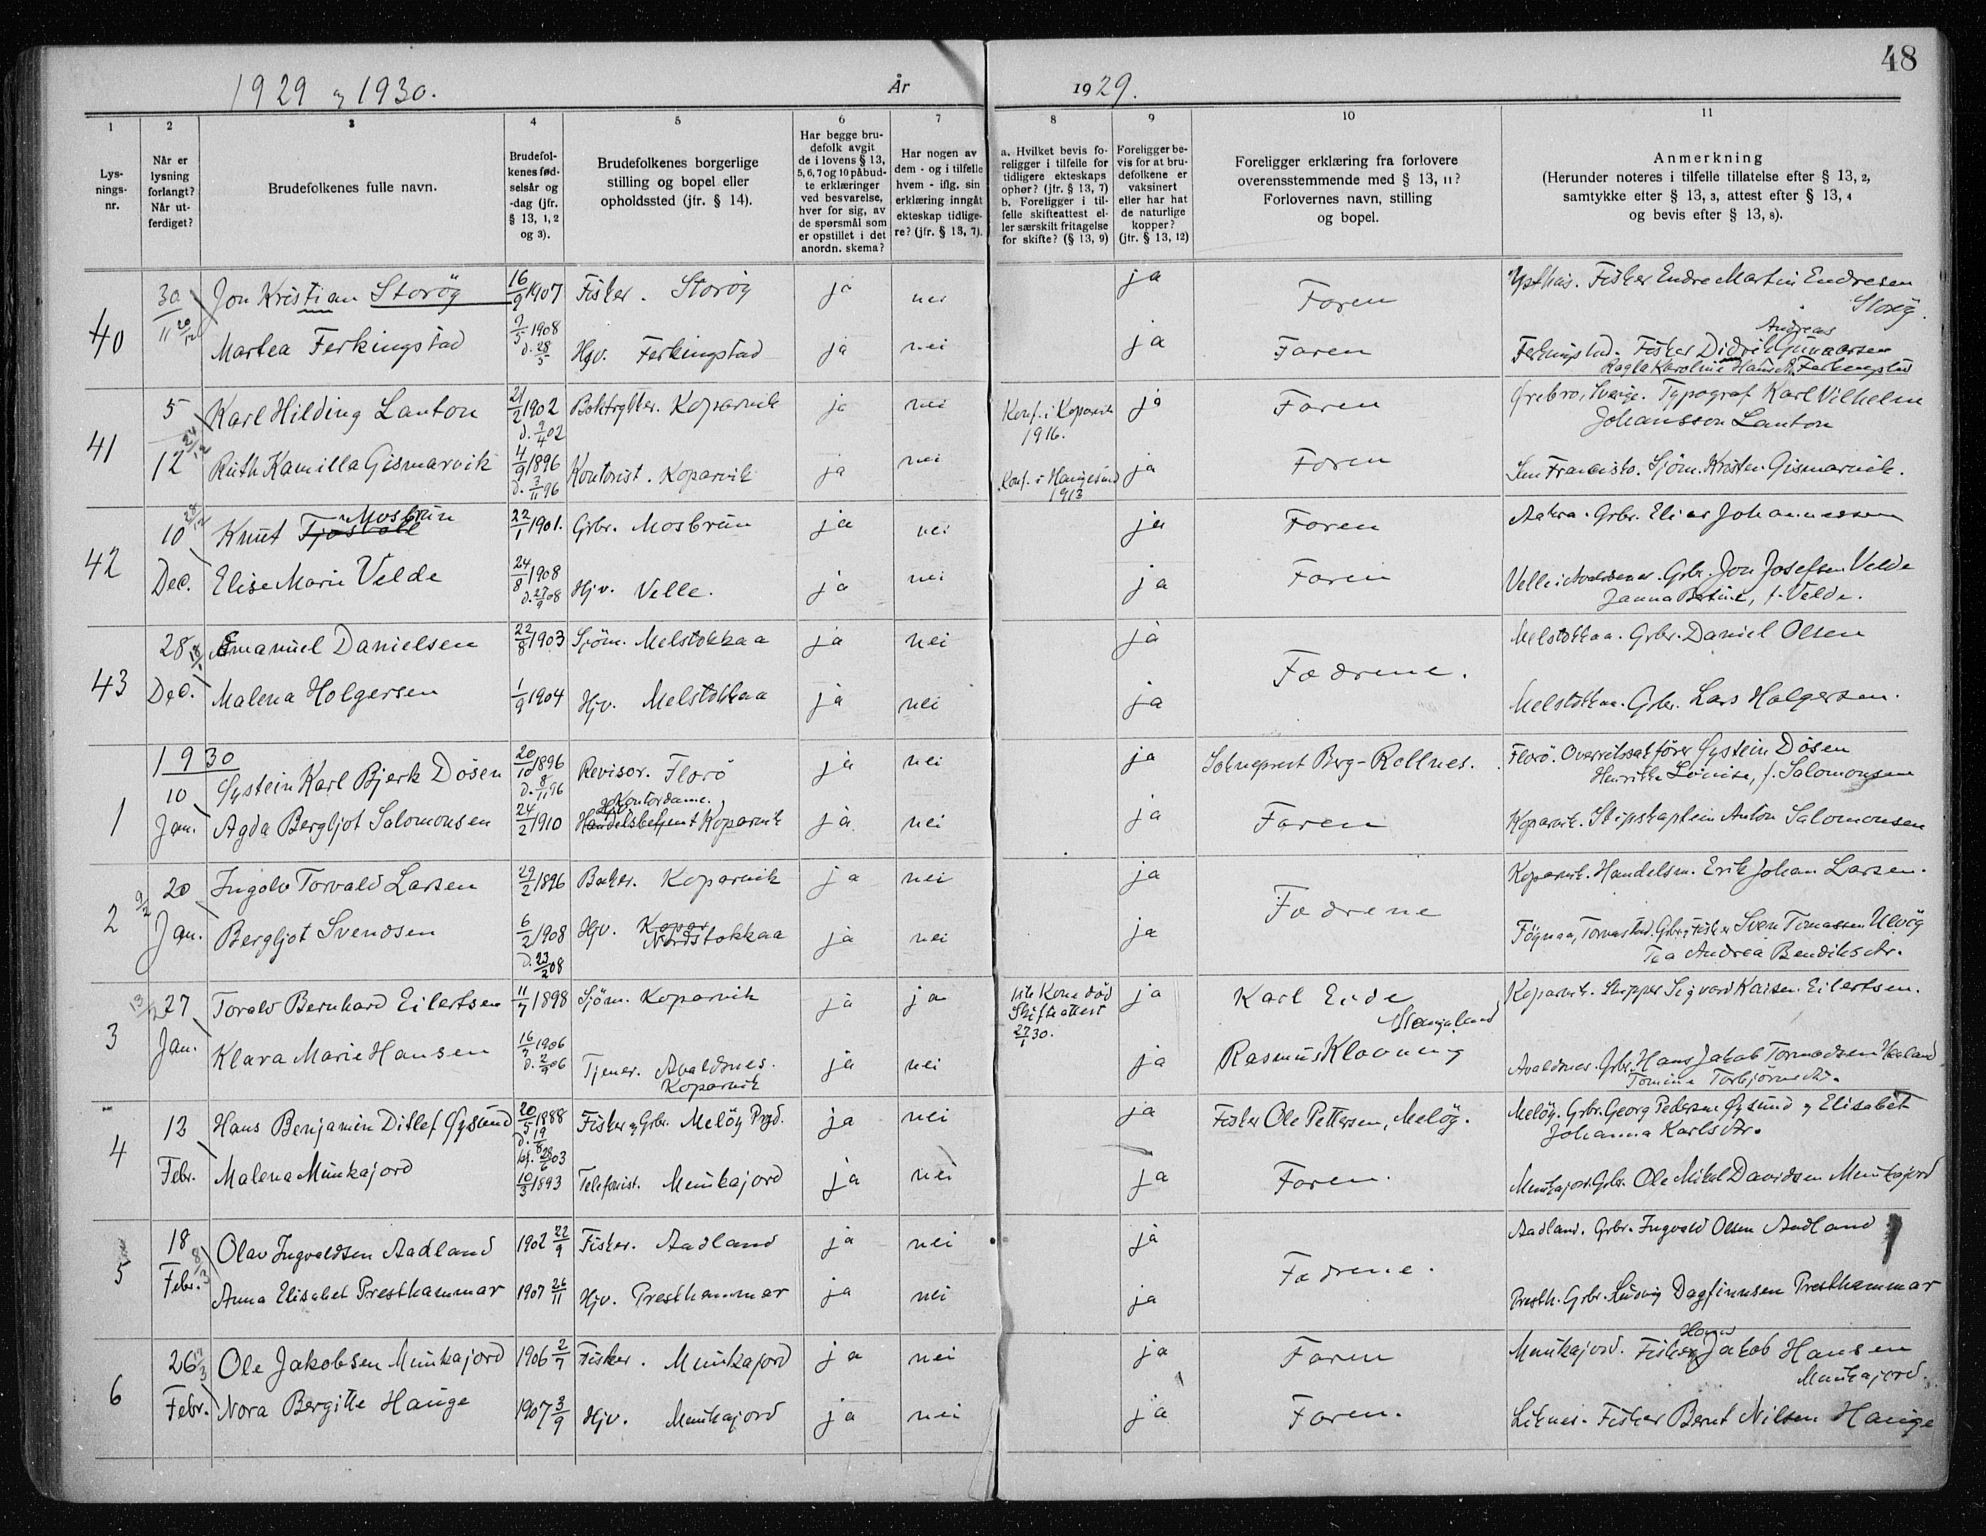 48
1929 og 1930. År 1929.
1 2 3 4 5 6 7 8 9 10 11
Lys-
nings-
nr.
Når er
lysning
forlangt?
Når ut-
ferdiget?
Brudefolkenes fulle navn.
Brudefol-
kenes fød-
selsår og
-dag (jfr.
§ 13, 1, 2
og 3).
Brudefolkenes borgerlige
stilling og bopel eller
opholdssted (jfr. § 14).
Har begge bru-
defolk avgit
de i lovens § 13,
5, 6, 7 og 10 påbud-
te erklæringer
ved besvarelse,
hver for sig, av
de spørsmål som
er opstillet i det
anordn. skema?
Har nogen av
dem - og i tilfelle
hvem - iflg. sin
erklæring inngåt
ekteskap tidlige-
re? (jfr. § 13, 7).
a. Hvilket bevis fo-
religger i tilfelle for
tidligere ekteskaps
ophør? (jfr. § 13, 7)
b. Foreligger i til-
felle skifteattest el-
ler særskilt fritagelse
for skifte? (§ 13, 9)
Foreligger be-
vis for at bru-
defolkene er
vaksinert
eller har hat
de naturlige
kopper?
(jfr. § 13, 12)
Foreligger erklæring fra forlovere
overensstemmende med § 13, 11?
Forlovernes navn, stilling
og bopel.
Anmerkning
(Herunder noteres i tilfelle tillatelse efter § 13, 2,
samtykke efter § 13, 3, attest efter § 13, 4
og bevis efter § 13, 8).
40 30/11 20/12 Jon Kristian Storöy 16/9 1907 Fisker. Storöy ja nei ja Faren Fisker Endre Martin Endresen
Storöy.
Martea Ferkingstad 9/5 1908 d. 28/5 Hjv. Ferkingstad ja nei ja Faren Ferkingstad. Fisker Andreas Didrik Gunnarsen
Ragla Karoline Hansdt. Ferkingstad
41 5/12 24/12 Karl Hilding Lanton 21/2 1902 d. 9/4 02 Boktrykker. Koparvik ja nei Konf. i Koparvik
1916. ja Faren Örebro, Sverige. Typograf Karl Vilhelm
Johansson Lanton
Ruth Kamilla Gismarvik 4/9 1896 d. 3/11 96 Kontorist. Koparvik ja nei Konf. i Haugesund
1913 ja Faren San Francisko. Sjøm. Kristen Gismarvik.
42 10 Dec. 28/12 Knut Tjostoll Mosbrun 22/1 1901. Grbr. Mosbrun ja nei ja Faren Aakra. Grbr. Elias Johannessen
Elise Marie Velde 24/8 1908 d. 27/9 08 Hjv. Velle. ja nei ja Faren Velle i Avaldsnes. Grbr. Jon Josefsen Velde
Janna Bertine, f. Velde.
43 28 Dec. 18/1 Emanuel Danielsen 22/8 1903 Sjøm. Melstokkaa ja nei ja Fædrene. Melstokkaa. Grbr. Daniel Olsen
Malena Holgersen 1/9 1904 Hjv. Melstokkaa ja nei ja Melstokkaa. Grbr. Lars Holgersen.
1930
1 10 Jan. Öystein Karl Bjerk Døsen 20/10 1896 d. 8/11 96 Revisor. Florø ja nei ja Sokneprest Berg-Rollnes. Florö. Overretssakfører Øystein Døsen
Henrikke Lovise, f. Salomonsen
Agda Bergljot Salomonsen 24/2 1910 Handelsbetjent Kontordame. Koparvik ja nei ja Faren Koparvik. Skipskaptein Anton Salomonsen
2 20 Jan. 9/2 Ingolv Torvald Larsen 29/2 1896 Baker. Koparvik ja nei ja Fædrene Koparvik. Handelsm. Erik Johan Larsen.
Bergljot Svendsen 6/2 1908 d. 23/2 08 Hjv. Kopar Nordstokkaa ja nei ja Føynaa, Torvastad. Grbr. og Fisker Sven Tomassen Utvög
Tea Andrea Bendiksdtr.
3 27 Jan. 13/2 Toralv Bernhard Eilertsen 11/7 1898 Sjøm. Koparvik ja ja 1ste Kone död
Skifteattest
27/1 30. ja Karl Eide
Stangeland Koparvik. Skipper Sigvard Kaisen Eilertsen.
Klara Marie Hansen 16/7 1906 d. 2/9 06 Tjener. Avaldsnes.
Koparvik ja nei ja Rasmus Klovning Avaldsnes. Grbr. Hans Jakob Tormodsen
Tomine Torbjörnsdtr.
4 12 Febr. Hans Benjamin Ditlef Øysund 20/5 1888 d. 19/8 kf. 28/6 03 Fisker og Grbr. Meløy Prgd. ja nei ja Fisker Ole Pettersen, Meløy. Meløy. Grbr. Georg Pedersen Øysund og Elisabet
Johanna Karlsdtr.
Malena Munkajord 10/3 1893 Telefonist. Munkajord ja nei ja Faren. Munkajord. Grbr. Ole Mikal Davidsen Munkajord
5 18 Febr. 8/3 Olav Ingvaldsen Aadland 1902 22/9 Fisker. Aadland ja nei ja Fædrene. Aadland. Grbr. Ingvald Olsen Aadland
Anna Elisabet Presthammar 1907 26/11 Hjv. Presthammar ja nei ja Presth. Grbr. Ludvig Dagfinnsen Presthammar
6 26 Febr. Ole Jakobsen Munkajord 1906 2/7 Fisker. Munkajord ja nei ja Faren Munkajord. Fisker Hans Jakob Hansen
Munkajord.
Nora Bergitte Hauge 1907 3/9 Hjv. Munkajord ja nei ja Faren. Liknes. Fisker Bernt Nilsen Hauge